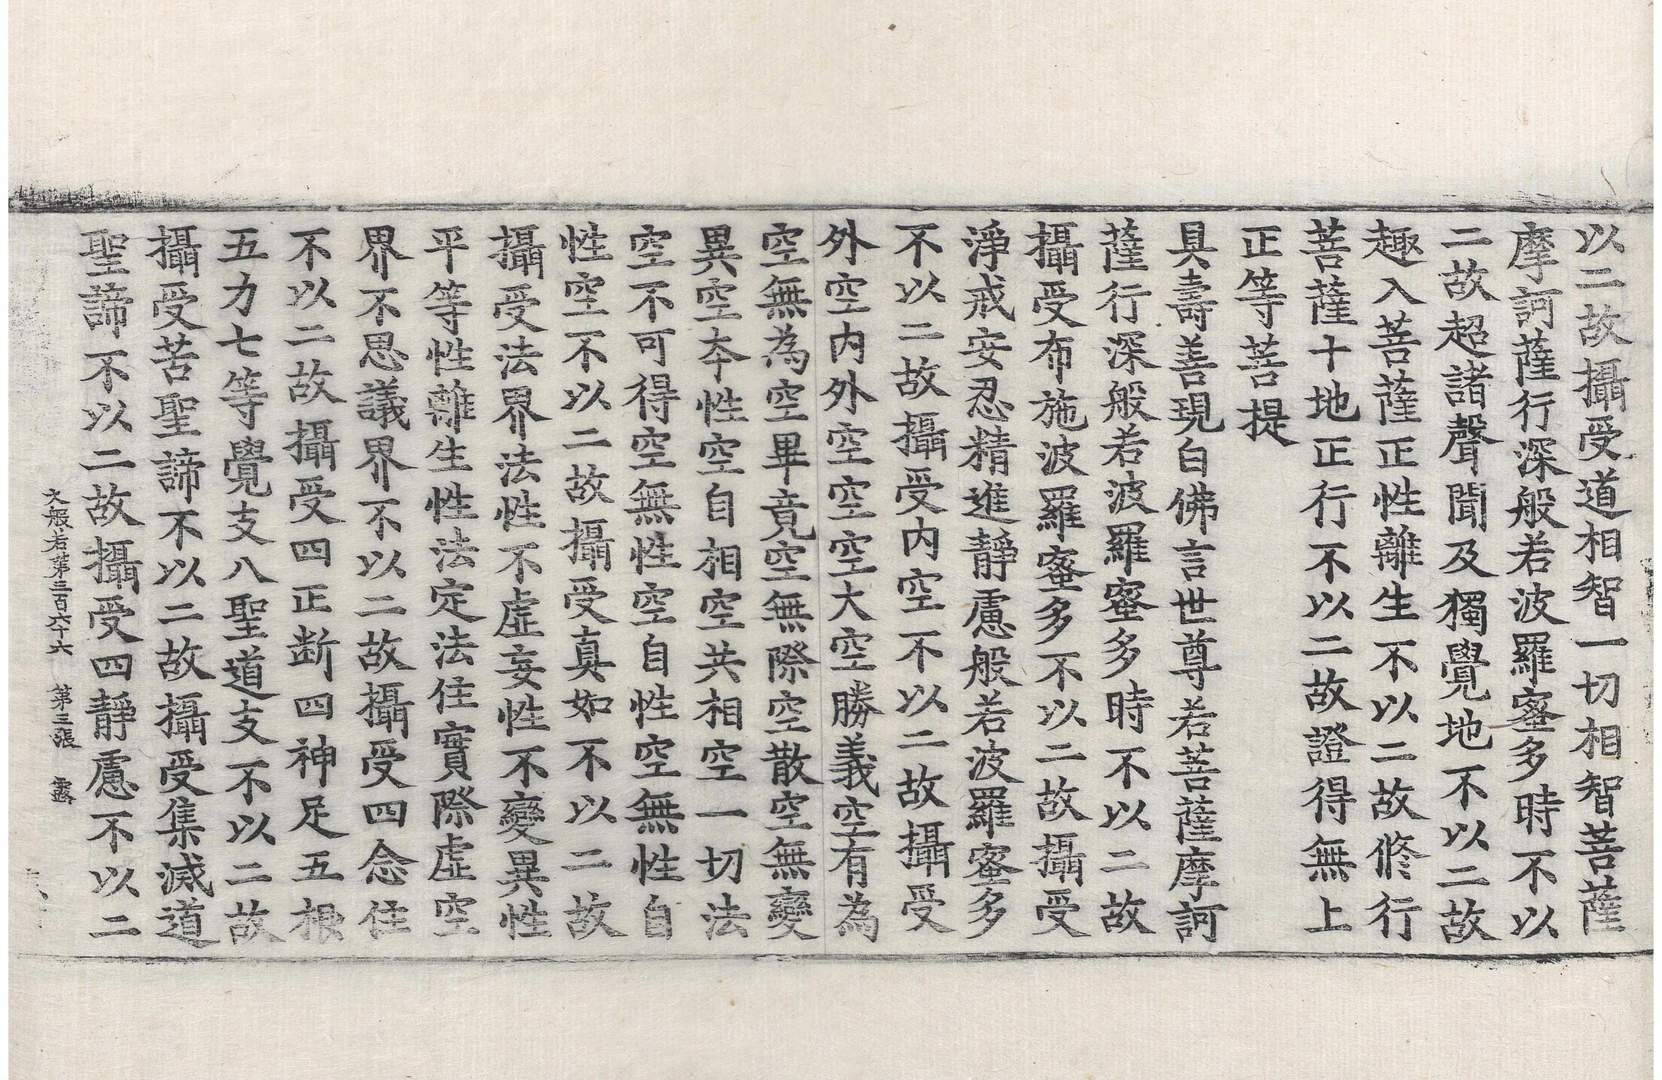 以二故攝受道相智一切相智菩薩
摩訶薩行深般若波羅蜜多時不以
二故超諸聲聞及獨覺地不以二故
趣入菩薩正性離生不以二故修行
菩薩十地正行不以二故證得無上
正等菩提
具壽善現白佛言世尊若菩薩摩訶
薩行深般若波羅蜜多時不以二故
攝受布施波羅蜜多不以二故攝受
淨戒安忍精進靜慮般若波羅蜜多
不以二故攝受內空不以二故攝受
外空內外空空空大空勝義空有為
空無為空畢竟空無際空散空無變
異空本性空自相空共相空一切法
空不可得空無性空自性空無性自
性空不以二故攝受真如不以二故
攝受法界法性不虛妄性不變異性
平等性離生性法定法住實際虛空
界不思議界不以二故攝受四念住
不以二故攝受四正斷四神足五根
五力七等覺支八聖道支不以二故
攝受苦聖諦不以二故攝受集滅道
聖諦不以二故攝受四靜慮不以二
大般若第三百六十六 第三張 露